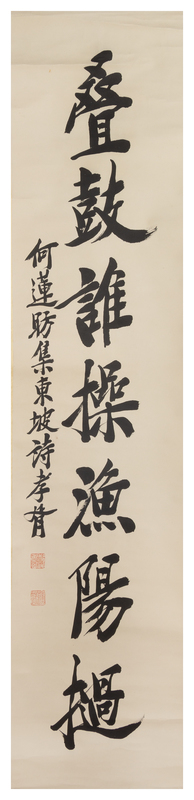 叠鼓誰操漁陽撾
何蓮昉集東坡詩孝胥